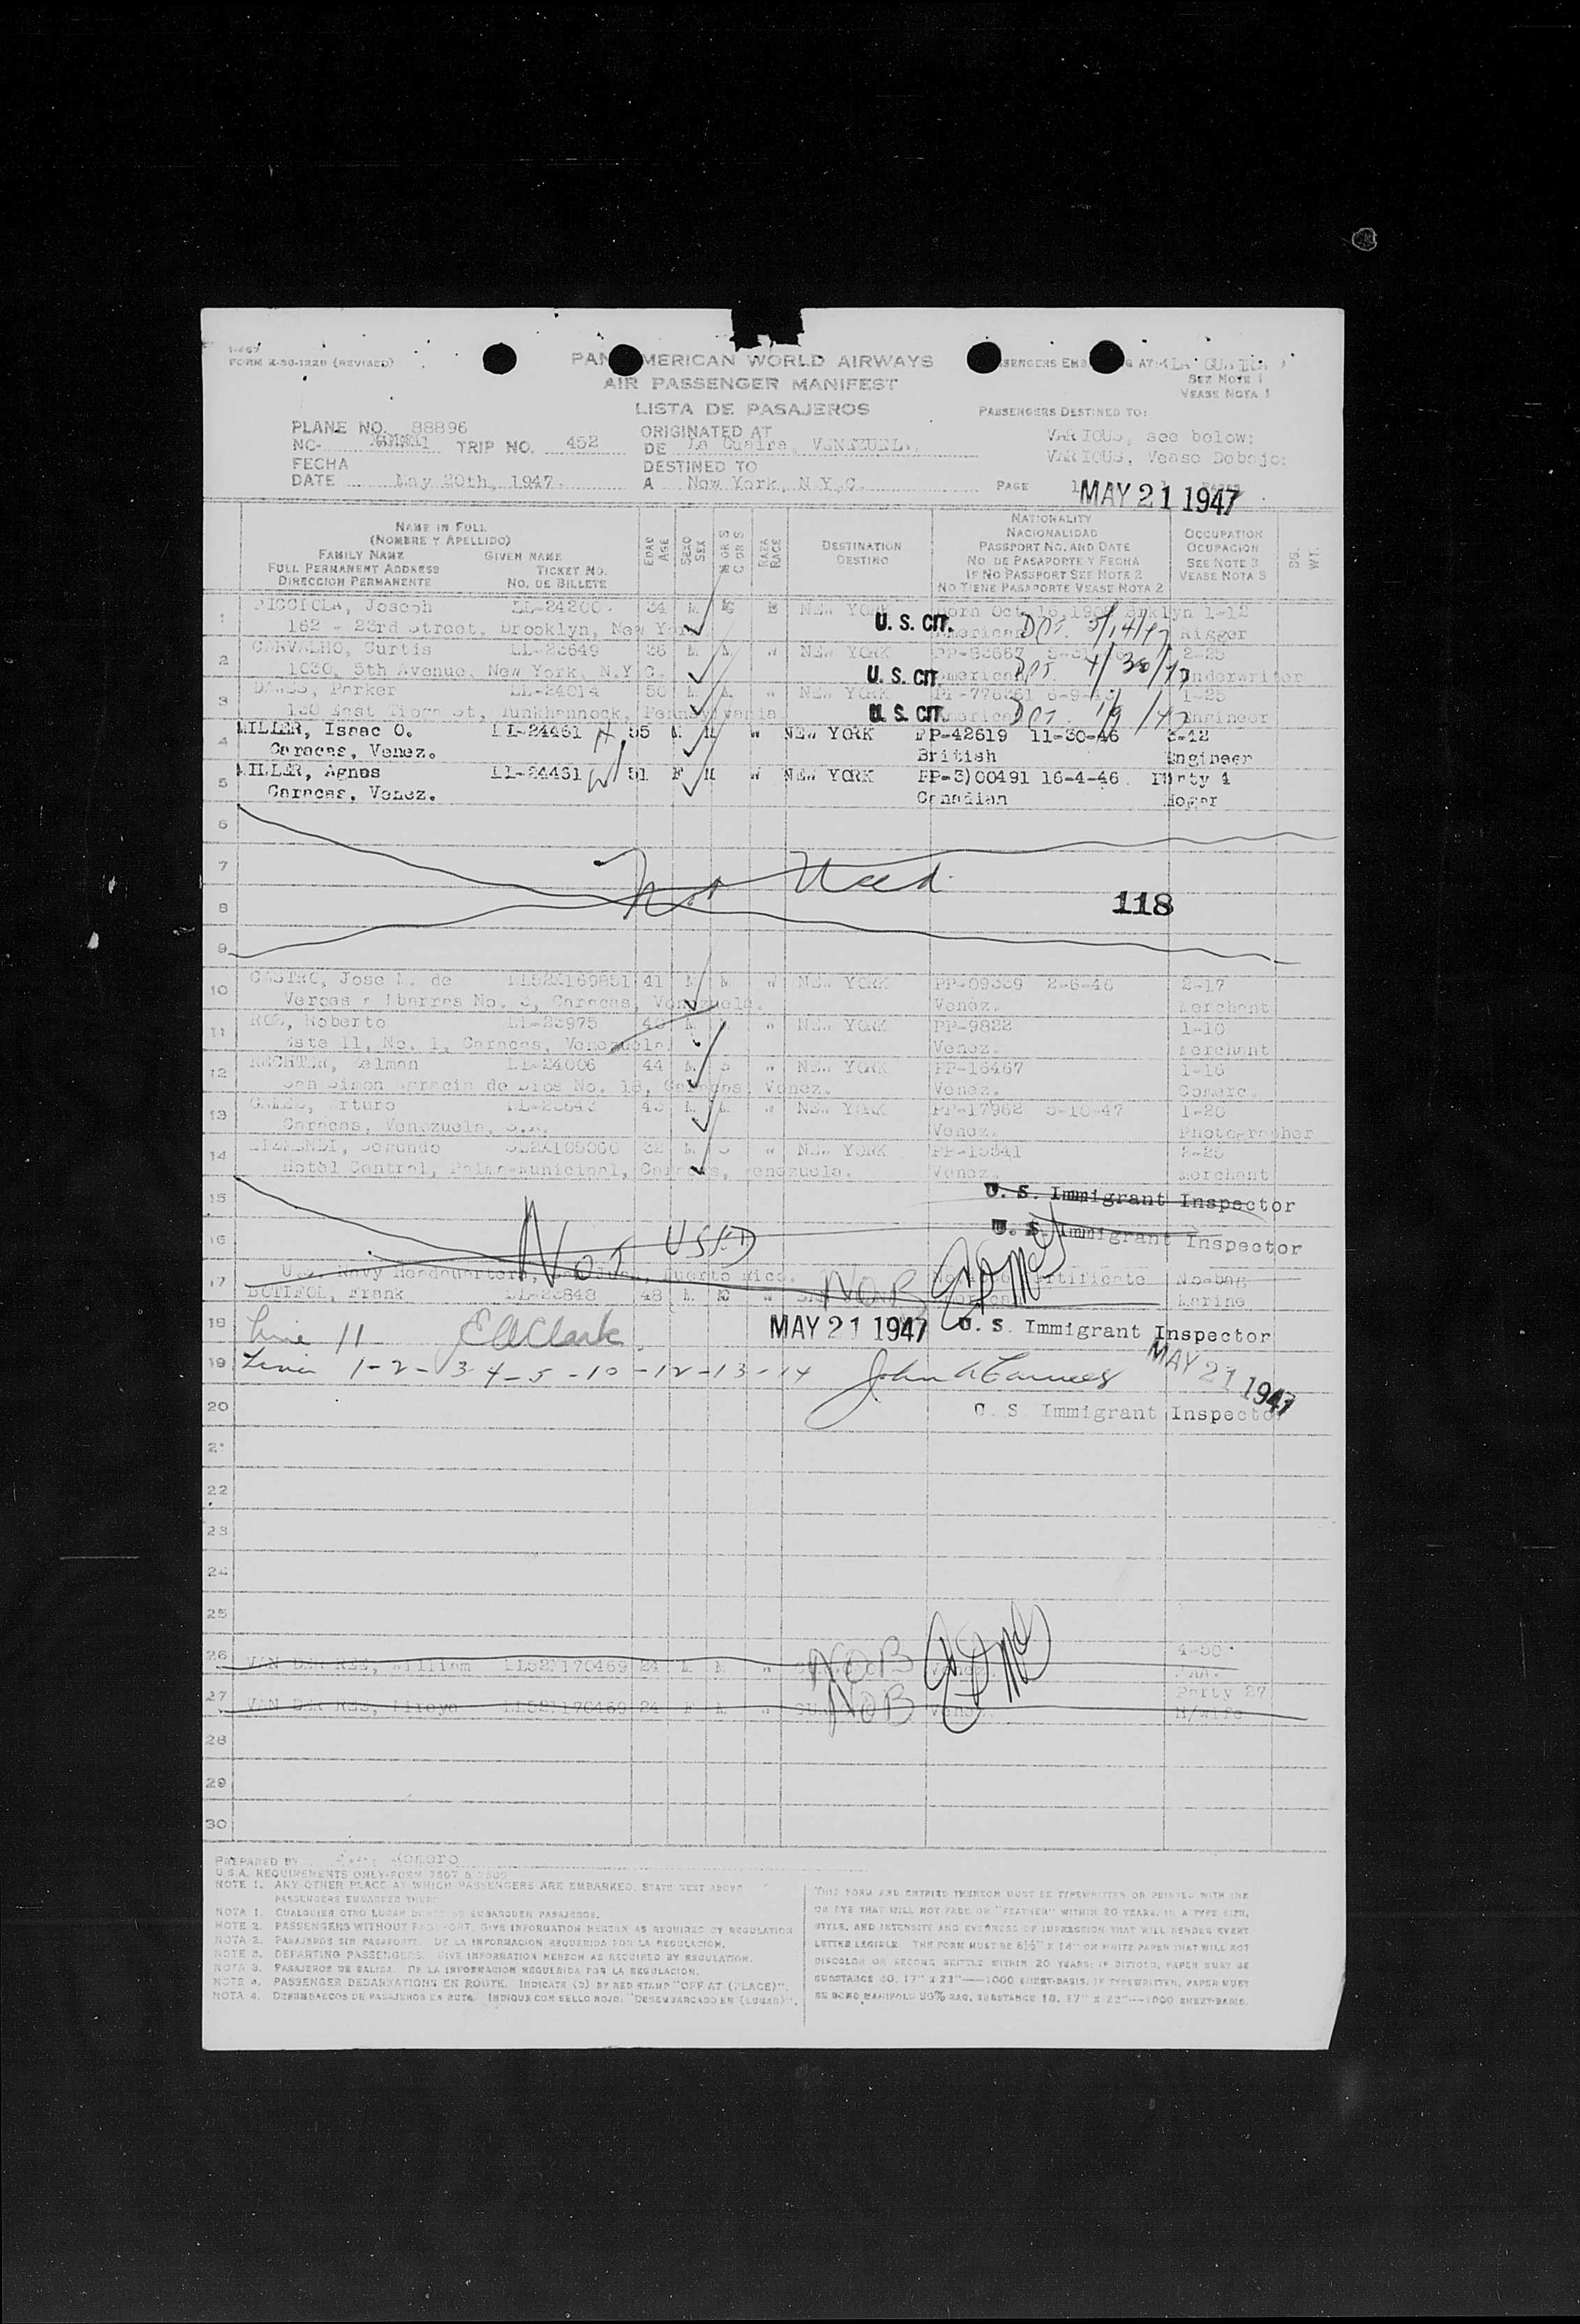 FORM X-50-1228 (REVISED)
PAN AMERICAN WORLD AIRWAYS
AIR PASSENGER MANIFEST
LISTA DE PASAJEROS
SEE NOTE 1
VEASE NOTA 1
PASSENGERS DESTINED TO:
VARIOUS, see below:
VARIOUS, Vease Debajo:
PLANE NO. 88896
NC- TRIP NO. 452
ORIGINATED AT
DE La Guaira, VENEZUELA,
FECHA
DATE May 20th, 1947.
DESTINED TO
A New York, N.Y.C.
PAGE 1
MAY 21 1947
NAME IN FULL
(NOMBRE Y APELLIDO)
FAMILY NAME GIVEN NAME
FULL PERMANENT ADDRESS TICKET NO.
DIRECCION PERMANENTE NO. DE BILLETE
EDAD AGE
SEXO SEX
M OR S
C OR S
RAZA RACE
DESTINATION
DESTINO
NATIONALITY
NACIONALIDAD
PASSPORT NO. AND DATE
NO. DE PASAPORTE Y FECHA
IF NO PASSPORT SEE NOTE 2
NO TIENE PASAPORTE VEASE NOTA 2
OCCUPATION
OCUPACION
SEE NOTE 3
VEASE NOTA 3
WT.
1 PICCIOLA, Joseph LL-24200 34 M NEW YORK Born Oct. 1-12
162 - 23rd Street, Brooklyn, New York U.S. CIT. American 5/14/47 Rigger
2 CARVALHO, Curtis LL-23649 36 M M W NEW YORK PP-83667 2-25
1030, 5th Avenue, New York, N.Y.C. U.S. CIT. American 4/30/47 Underwriter
3 Parker LL-24014 50 M M W NEW YORK 1-25
130 East Tioga St, Tunkhannock, Pennsylvania U.S. CIT. American Engineer
4 MILLER, Isaac O. LL-24461 55 M M W NEW YORK PP-42619 11-30-46 3-42
Caracas, Venez. British Engineer
5 MILLER, Agnes LL-24461 51 F M W NEW YORK PP-3)00491 16-4-46 Party 4
Caracas, Venez. Canadian Hogar
6
7 Not Used
8 118
9
10 CASTRO, Jose M. de LL52X169851 41 M M W NEW YORK PP-09339 2-6-46 2-17
Caracas, Venezuela. Venez. Merchant
11 Roberto LL-23975 40 M W NEW YORK PP-9822 1-10
Este 11, No. 1, Caracas, Venezuela. Venez. Merchant
12 LL-24006 44 M S W NEW YORK PP-16467 1-16
San Simon a Gracia de Dios No. 18, Caracas, Venez. Venez. Comerc.
13 Arturo 43 M M W NEW YORK PP-17962 1-20
Caracas, Venezuela, S.A. Venez. Photographer
14 Segundo 32 M S W NEW YORK PP-15341 2-25
Hotel Central, Caracas, Venezuela. Venez. Merchant
15 U. S. Immigrant Inspector
16 Not USED U. S. Immigrant Inspector
17 U.S. Navy Headquarters, San Juan, Puerto Rico. NOB Certificate No-bag
BOTIFOL, Frank LL-23848 48 M W Marine
18 Line 11 E A Clark MAY 21 1947 U. S. Immigrant Inspector
19 Line 1-2-3-4-5-10-12-13-14 MAY 21 1947
20 U. S. Immigrant Inspector
21
22
23
24
25
26 VAN DER REE, William LL52X170469 24 M M W NOB Venez. 4-50
27 VAN DER REE, LL52X170469 24 F M W NOB Venez. Party 27
H/wife
28
29
30
PREPARED BY Romero
U.S.A. REQUIREMENTS ONLY-FORM 7507 & 7509
NOTE 1. ANY OTHER PLACE AT WHICH PASSENGERS ARE EMBARKED, STATE NEXT ABOVE
PASSENGERS EMBARKED THERE
NOTA 1. CUALQUIER OTRO LUGAR DONDE SE EMBARQUEN PASAJEROS.
NOTE 2. PASSENGERS WITHOUT PASSPORT, GIVE INFORMATION HEREON AS REQUIRED BY REGULATION
NOTA 2. PASAJEROS SIN PASAPORTE, DE LA INFORMACION REQUERIDA POR LA REGULACION.
NOTE 3. DEPARTING PASSENGERS. GIVE INFORMATION HEREON AS REQUIRED BY REGULATION.
NOTA 3. PASAJEROS DE SALIDA. DE LA INFORMACION REQUERIDA POR LA REGULACION.
NOTE 4. PASSENGER DEBARKATIONS EN ROUTE. INDICATE (D) BY RED STAMP "OFF AT (PLACE)".
NOTA 4. DESEMBARCOS DE PASAJEROS EN RUTA. INDIQUE CON SELLO ROJO: "DESEMBARCADO EN (LUGAR)".
THIS FORM AND ENTRIES THEREON MUST BE TYPEWRITTEN OR PRINTED WITH INK
OR DYE THAT WILL NOT FADE OR "FEATHER" WITHIN 20 YEARS, IN A TYPE SIZE,
STYLE, AND INTENSITY AND EVENNESS OF IMPRESSION THAT WILL RENDER EVERY
LETTER LEGIBLE. THE FORM MUST BE 8½" X 14" ON WHITE PAPER THAT WILL NOT
DISCOLOR OR BECOME BRITTLE WITHIN 20 YEARS; IF DITTOED, PAPER MUST BE
SUBSTANCE 20, 17" X 22"—1000 SHEET-BASIS. IF TYPEWRITTEN, PAPER MUST
BE BOND MANIFOLD 50% RAG, SUBSTANCE 18, 17" X 22"—1000 SHEET-BASIS.